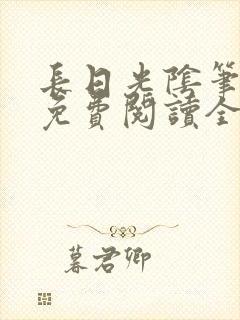 長日光陰筆
免費閱讀全
暮君卿